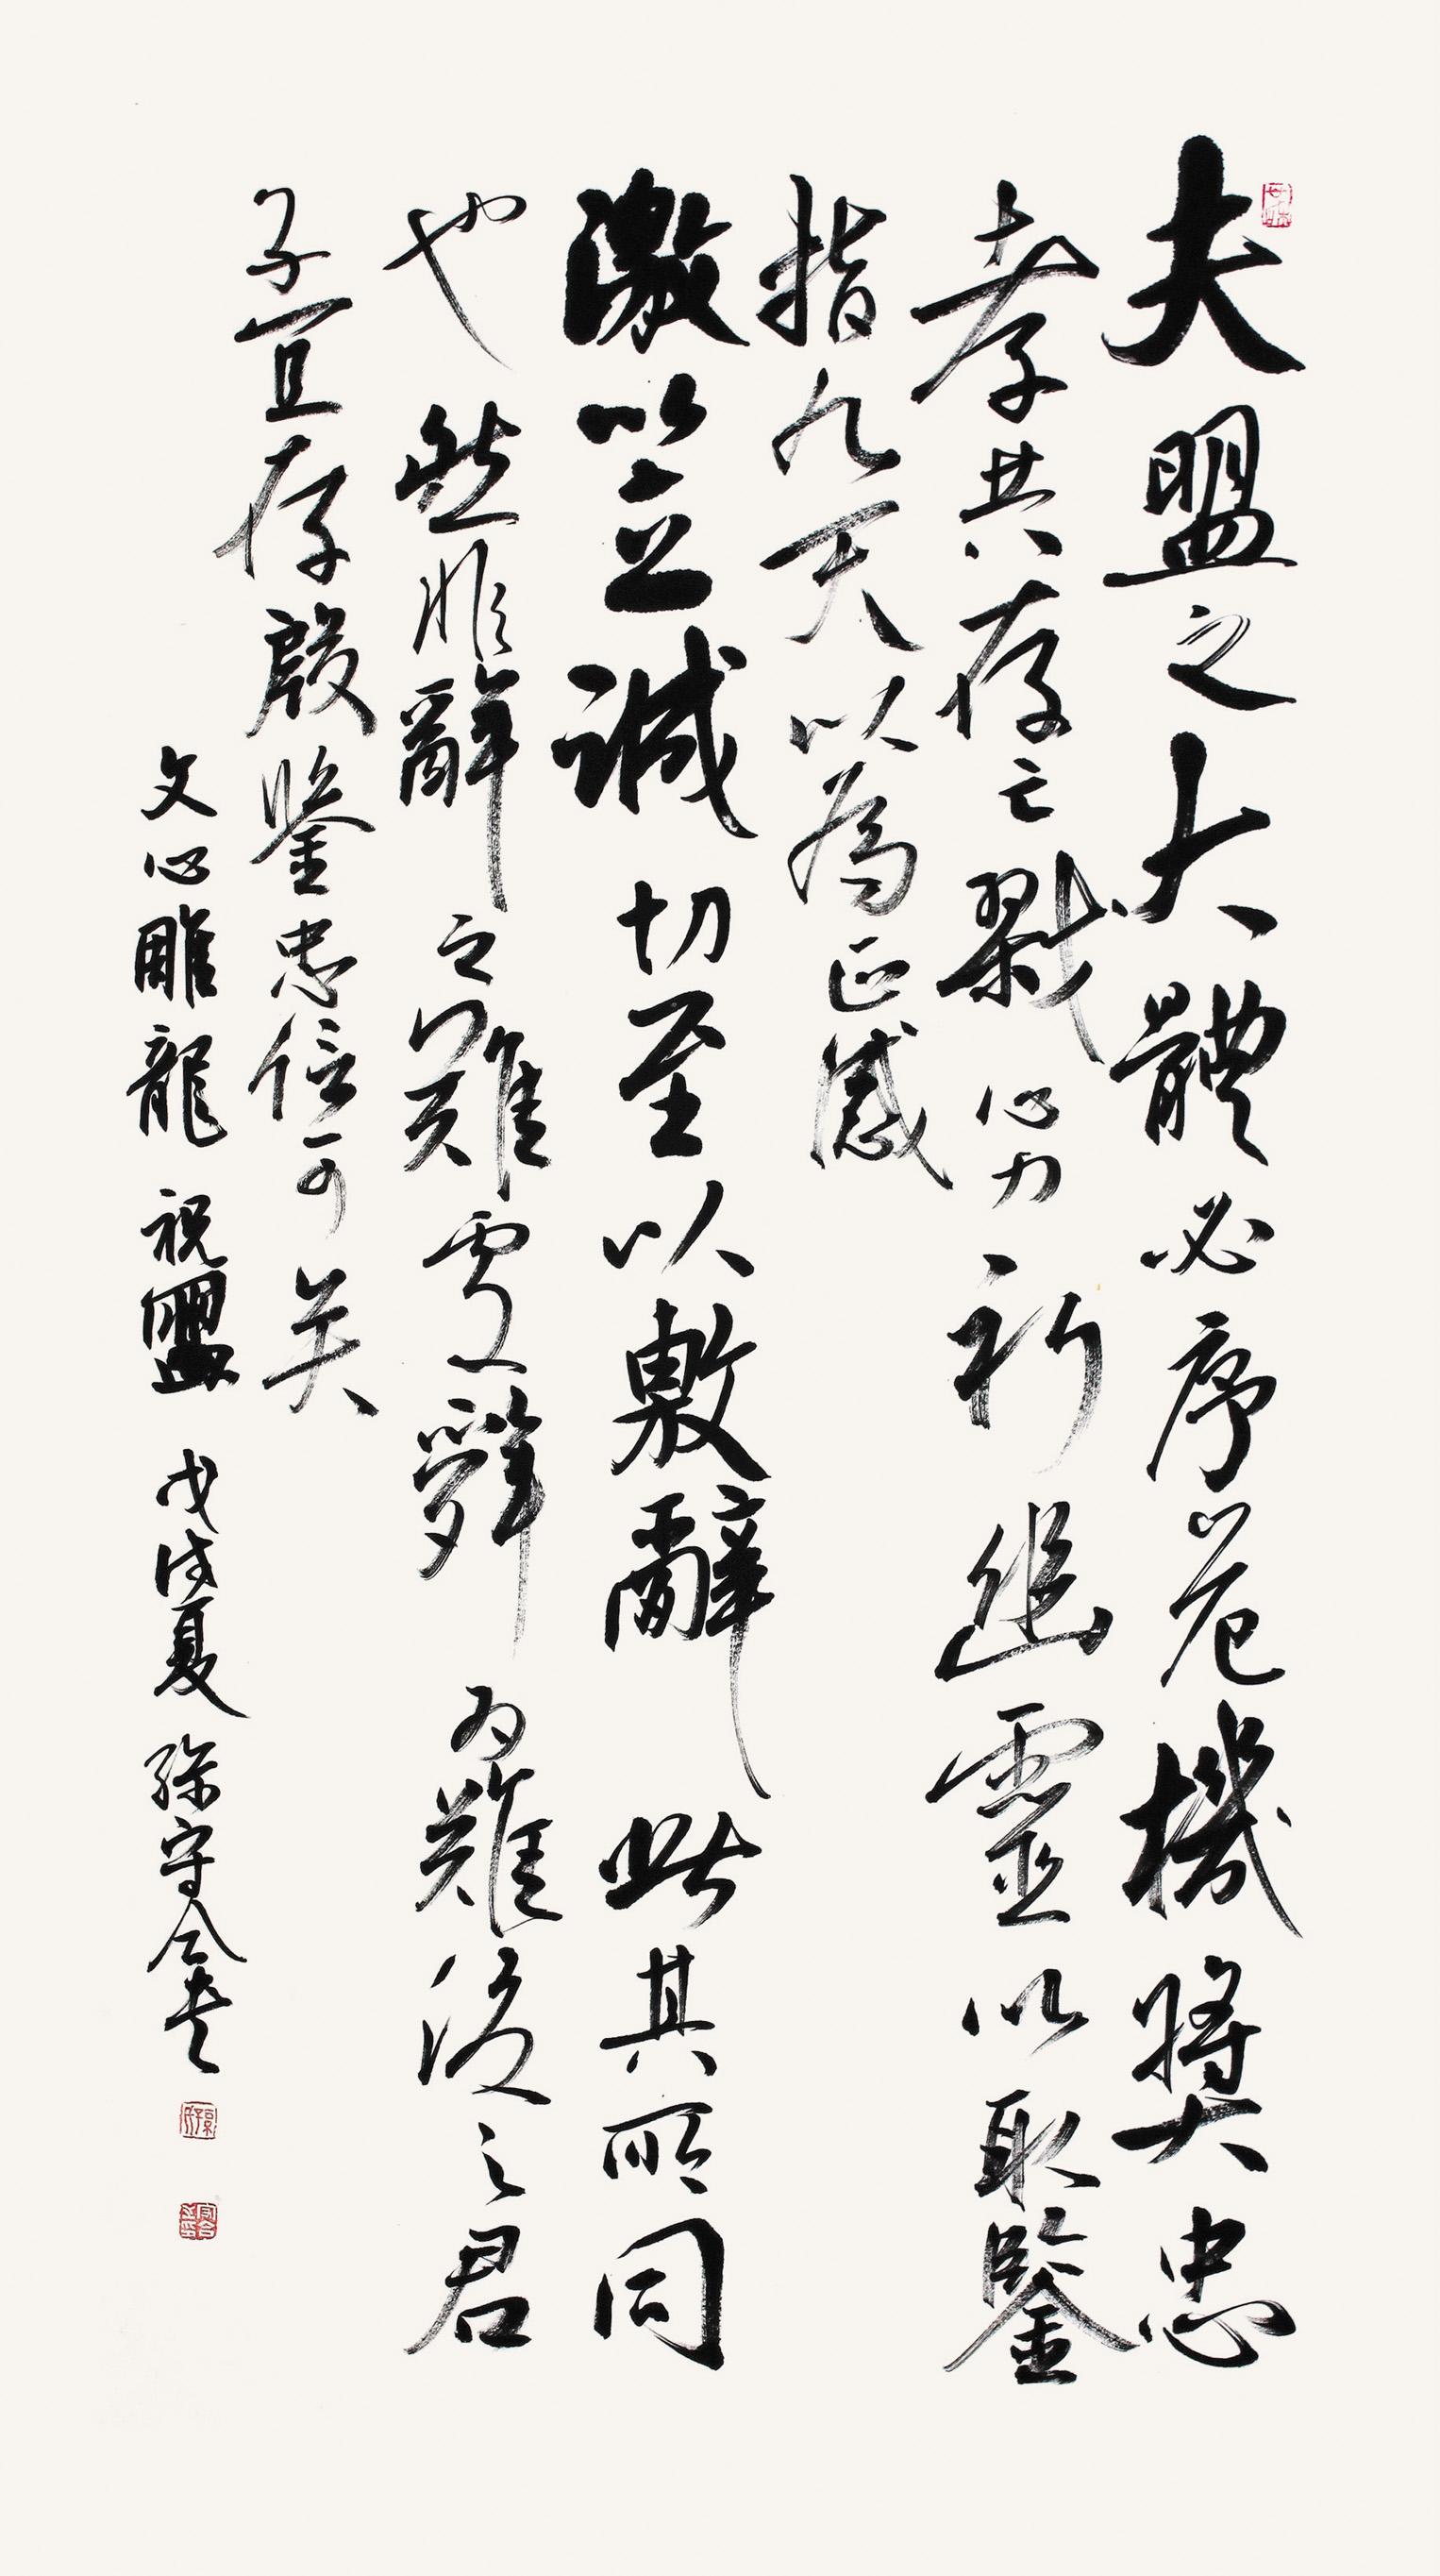 夫盟之大體必序危機獎忠
孝共存亡戮心力祈幽靈以取鑒
指九天以為正感
激以立誠切至以敷辭此其所同
也然非辭之難處辭为難後之君
子宜存殷鑒忠信可矣
文心雕龍 祝盟 戊戌夏 孫守書